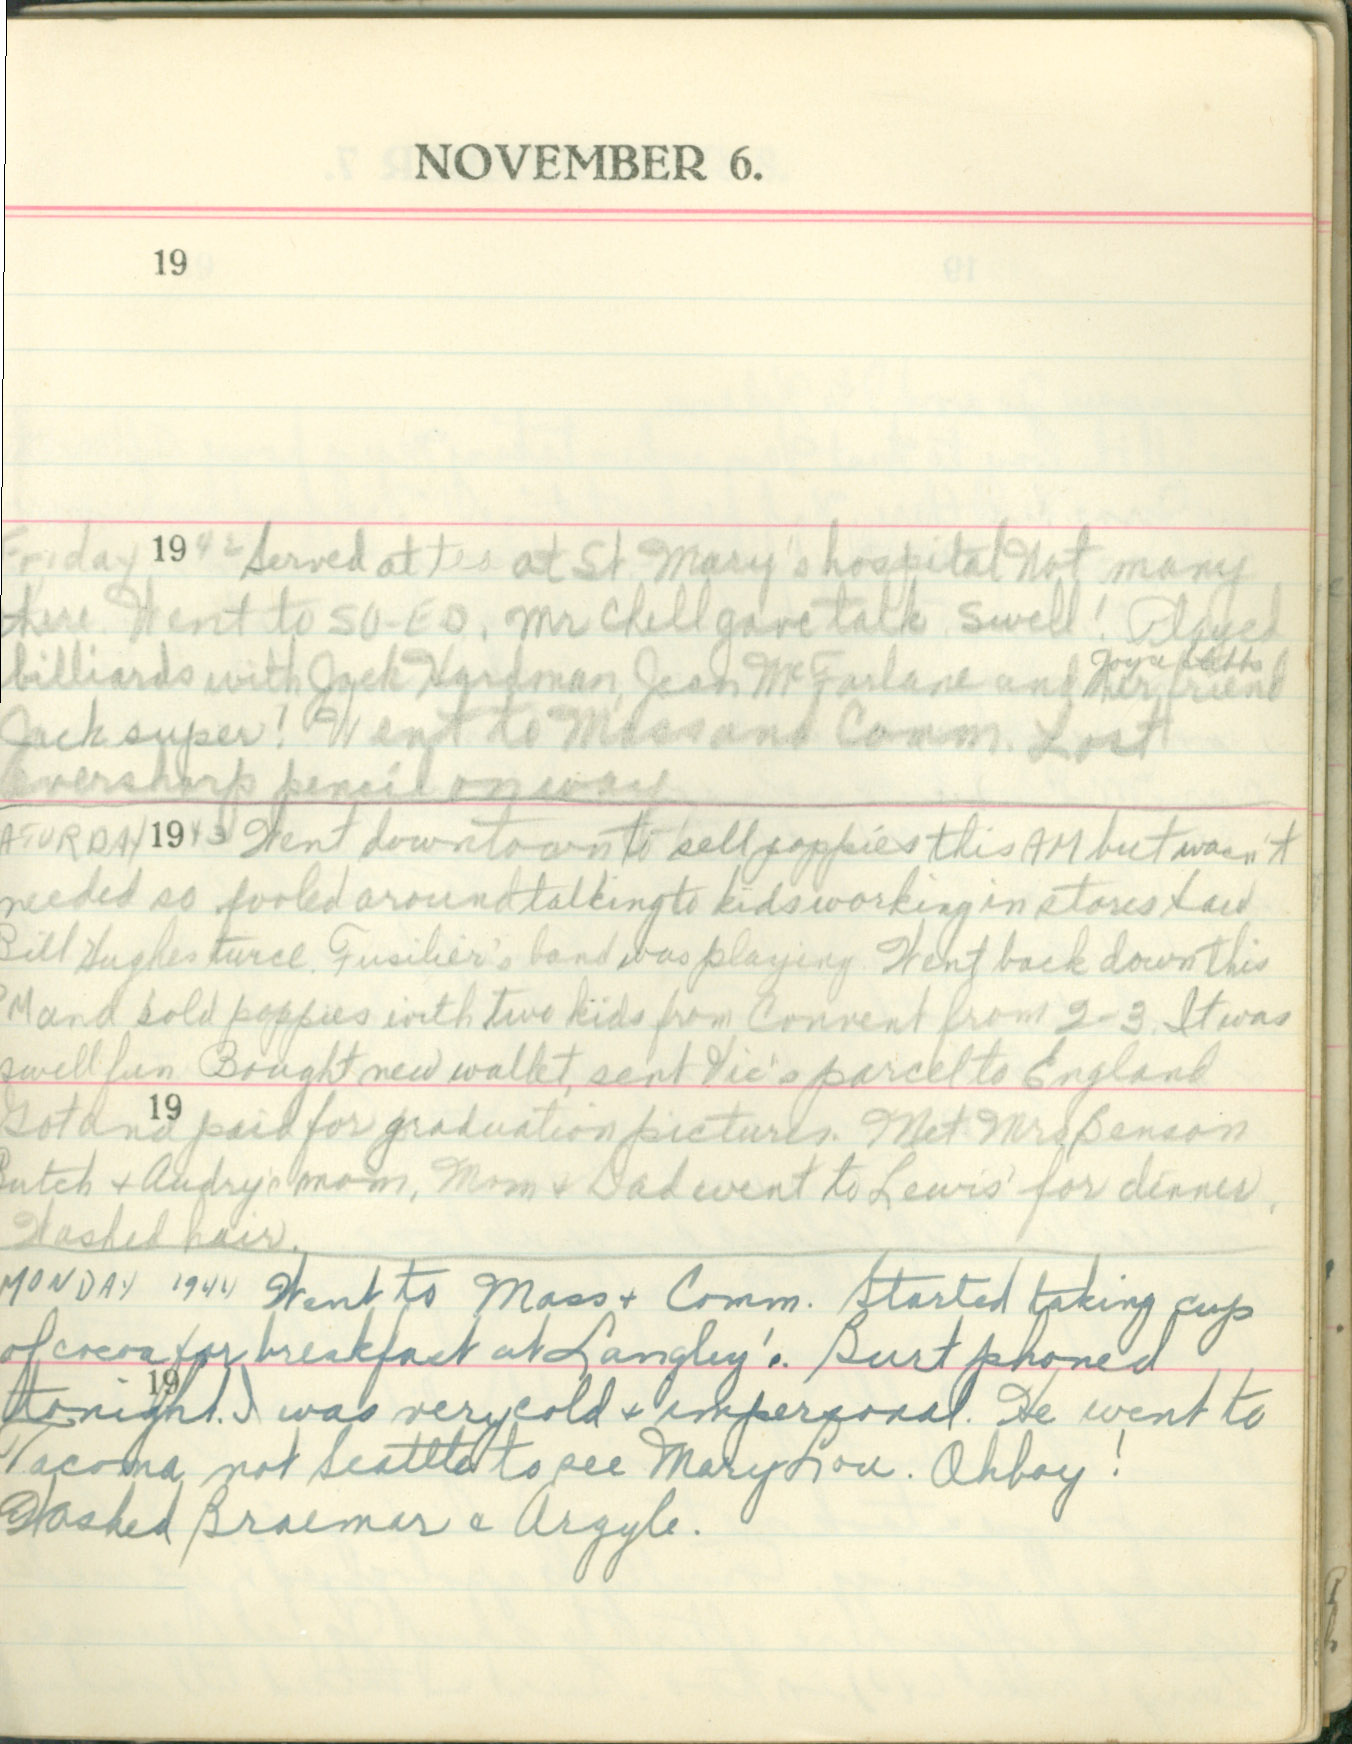 NOVEMBER 6.
19
Friday 1942 Served at tea at St. Mary's hospital Not many
there. Went to SO-ED. Mr Chell gave talk. Swell! Played
billiards with Jack Hardman, Jean McFarlane and her friend
Jack super! Went to Mass and Comm. Lost
Eversharp pencil on way
ATURDAY 1943 Went downtown to sell poppies this AM but wasn't
needed so fooled around talking to kids working in stores & saw
Bill Hughes twice. Fusilier's band was playing. Went back down this
PM and sold poppies with two kids from Convent from 2-3. It was
swell fun Bought new wallet, sent Vic's parcel to England
19
Got and paid for graduation pictures. Met Mrs Benson
Butch & Audry's mom, Mom & Dad went to Lewis' for dinner.
Washed hair.
MONDAY 1944 Went to Mass & Comm. Started taking cup
of cocoa for breakfast at Langley's. Burt phoned
19
tonight. I was very cold & impersonal. He went to
Tacoma not Seattle to see Mary Lou. Oh boy!
Washed Braemar & Argyle.